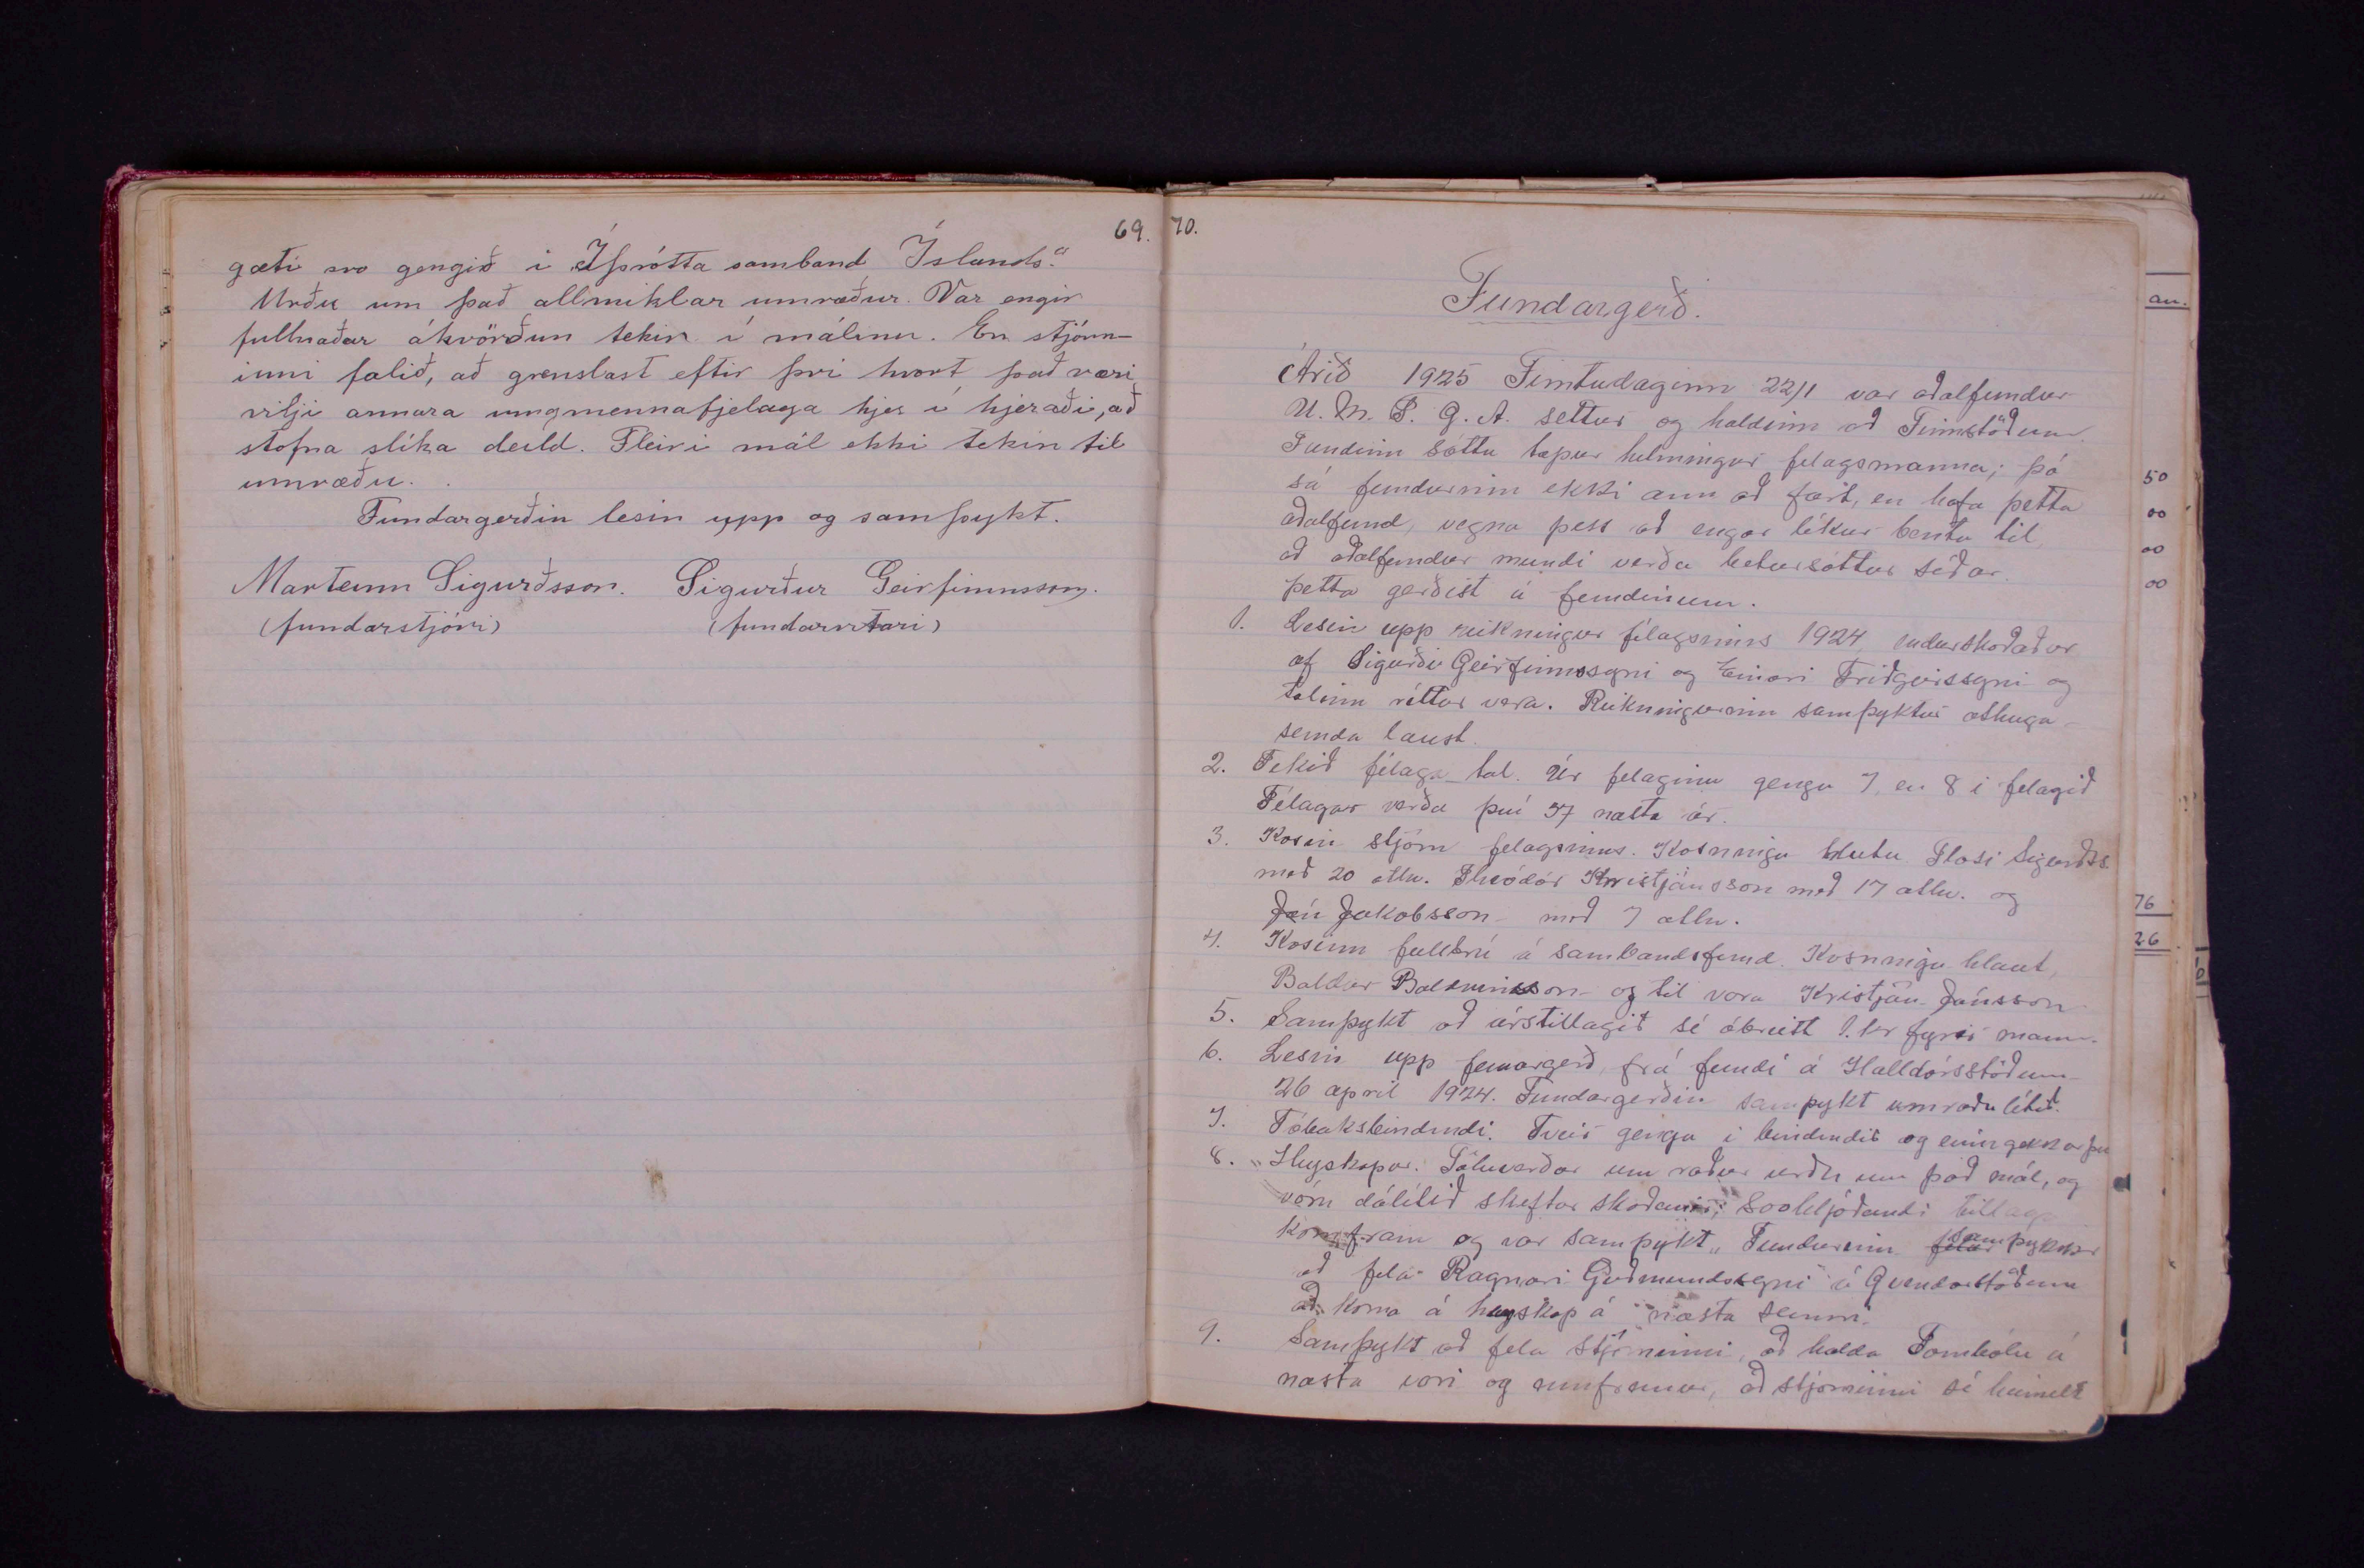 69.
gæti svo gengið i „Íþrótta samband Íslands."
Urðu um það allmiklar umræður. Var engin
fullnaðar ákvörðun tekin í málinu. En stjórn-
inni falið, að grenslast eftir því hvort það væri
vilji annara ungmennafjelaga hjer í hjeraði, að
stofna slíka deild. Fleiri mál ekki tekin til
umræðu.
Fundargerðin lesin upp og samþykt.
Marteinn Sigurðsson. Sigurður Geirfinnsson.
(fundarstjóri) (fundarritari)
70.
Fundargerð.
Árið 1925 Fimtudaginn 22/1 var aðalfundur
U. M. F. G. A. settur og haldinn að Finnstöðum.
Fundinn sóttu tæpur helmingur felagsmanna; þó
sá fundurinn ekki ann að fært, en hafa þetta
aðalfund, vegna þess að engar líkur bentu til
að aðalfundur mundi verða betursóttur síðar.
Þetta gerðist á fundinum.
1. Lesin upp reikningur félagsins 1924, endurskoðaður
af Sigurði Geirfinnssyni og Einari Friðgeirssyni og
talinn réttur vera. Reikningurinn samþyktur athuga-
semda laust.
2. Tekið félaga tal. Úr felaginu gengu 7, en 8 i felagið
Félagar verða því 57 næsta ár.
3. Kosin stjórn felagsins. Kosningu hlutu Flosi Sigurðss.
með 20 atkv. Theódór Kristjánsson með 17 atkv. og
Jón Jakobsson með 7 atkv.
4. Kosinn fulltrú á sambandsfund. Kosningu hlaut,
Baldur Baldvinsson og til vara Kristján Jónsson
5. Samþykt að árstillagið sé óbreitt 1. kr fyrir mann.
6. Lesin upp funargerð, frá fundi á Halldórsstöðum
26 april 1924. Fundargerðin samþykt umræðu lítið.
7. Tóbaksbindindi. Tveir gengu i bindindið og einn gekk ar þvi
8. „Hagskapar. Töluverðar um ræður urðu um það mál, og
vóru dálitið skeftar skoðanir; Svohljóðandi tillaga
kom fram og var samþykt „Fundurinn samþykkir
að fela Ragnari Guðmundssyni á Gvendarstöðum
að koma á hagskap á næsta sumri.
9. Samþykt að fela stjórninni, að halda Tombólu á
næsta vori og ennfremur, að stjórninni sé heimilt
au.
50
00
00
00
76
26